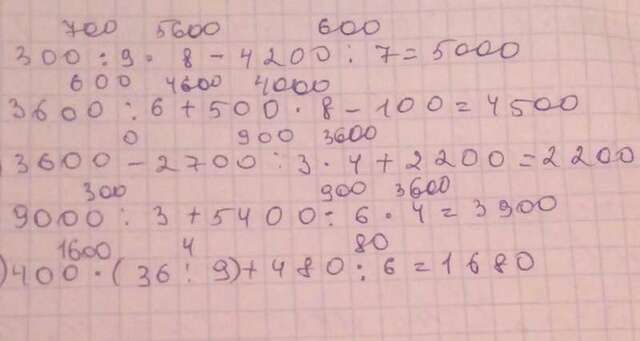 700 5600 600
300 : 9 · 8 - 4200 : 7 = 5000
600 4600 4000
3600 : 6 + 500 · 8 - 100 = 4500
0 900 3600
3600 - 2700 : 3 · 4 + 2200 = 2200
300 900 3600
9000 : 3 + 5400 : 6 · 4 = 3900
1600 4 80
) 400 · ( 36 : 9 ) + 480 : 6 = 1680